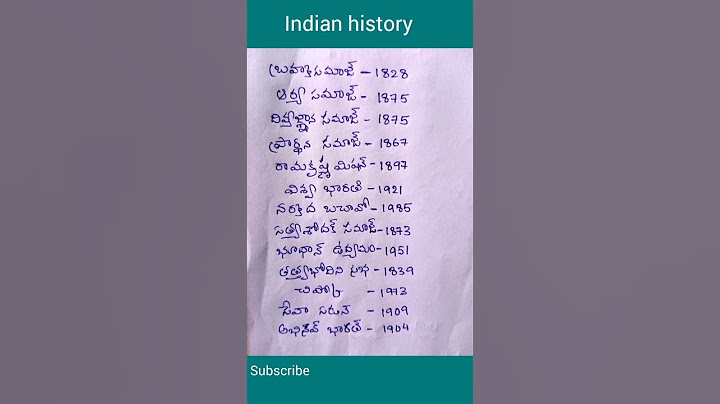 Indian history
బ్రహ్మసమాజ్ - 1828
ఆర్య సమాజ్ - 1875
దివ్యజ్ఞాన సమాజ్ - 1875
ప్రార్థన సమాజ్ - 1867
రామకృష్ణ మిషన్ - 1897
విశ్వ భారతి - 1921
నర్మద బచావో - 1985
సత్యశోదక్ సమాజ్ - 1873
భూదాన్ ఉద్యమం - 1951
తత్వభోదిని సభ - 1839
చిప్కో - 1973
సేవా సదన్ - 1909
అభినవ్ భారత్ - 1904
Subscribe